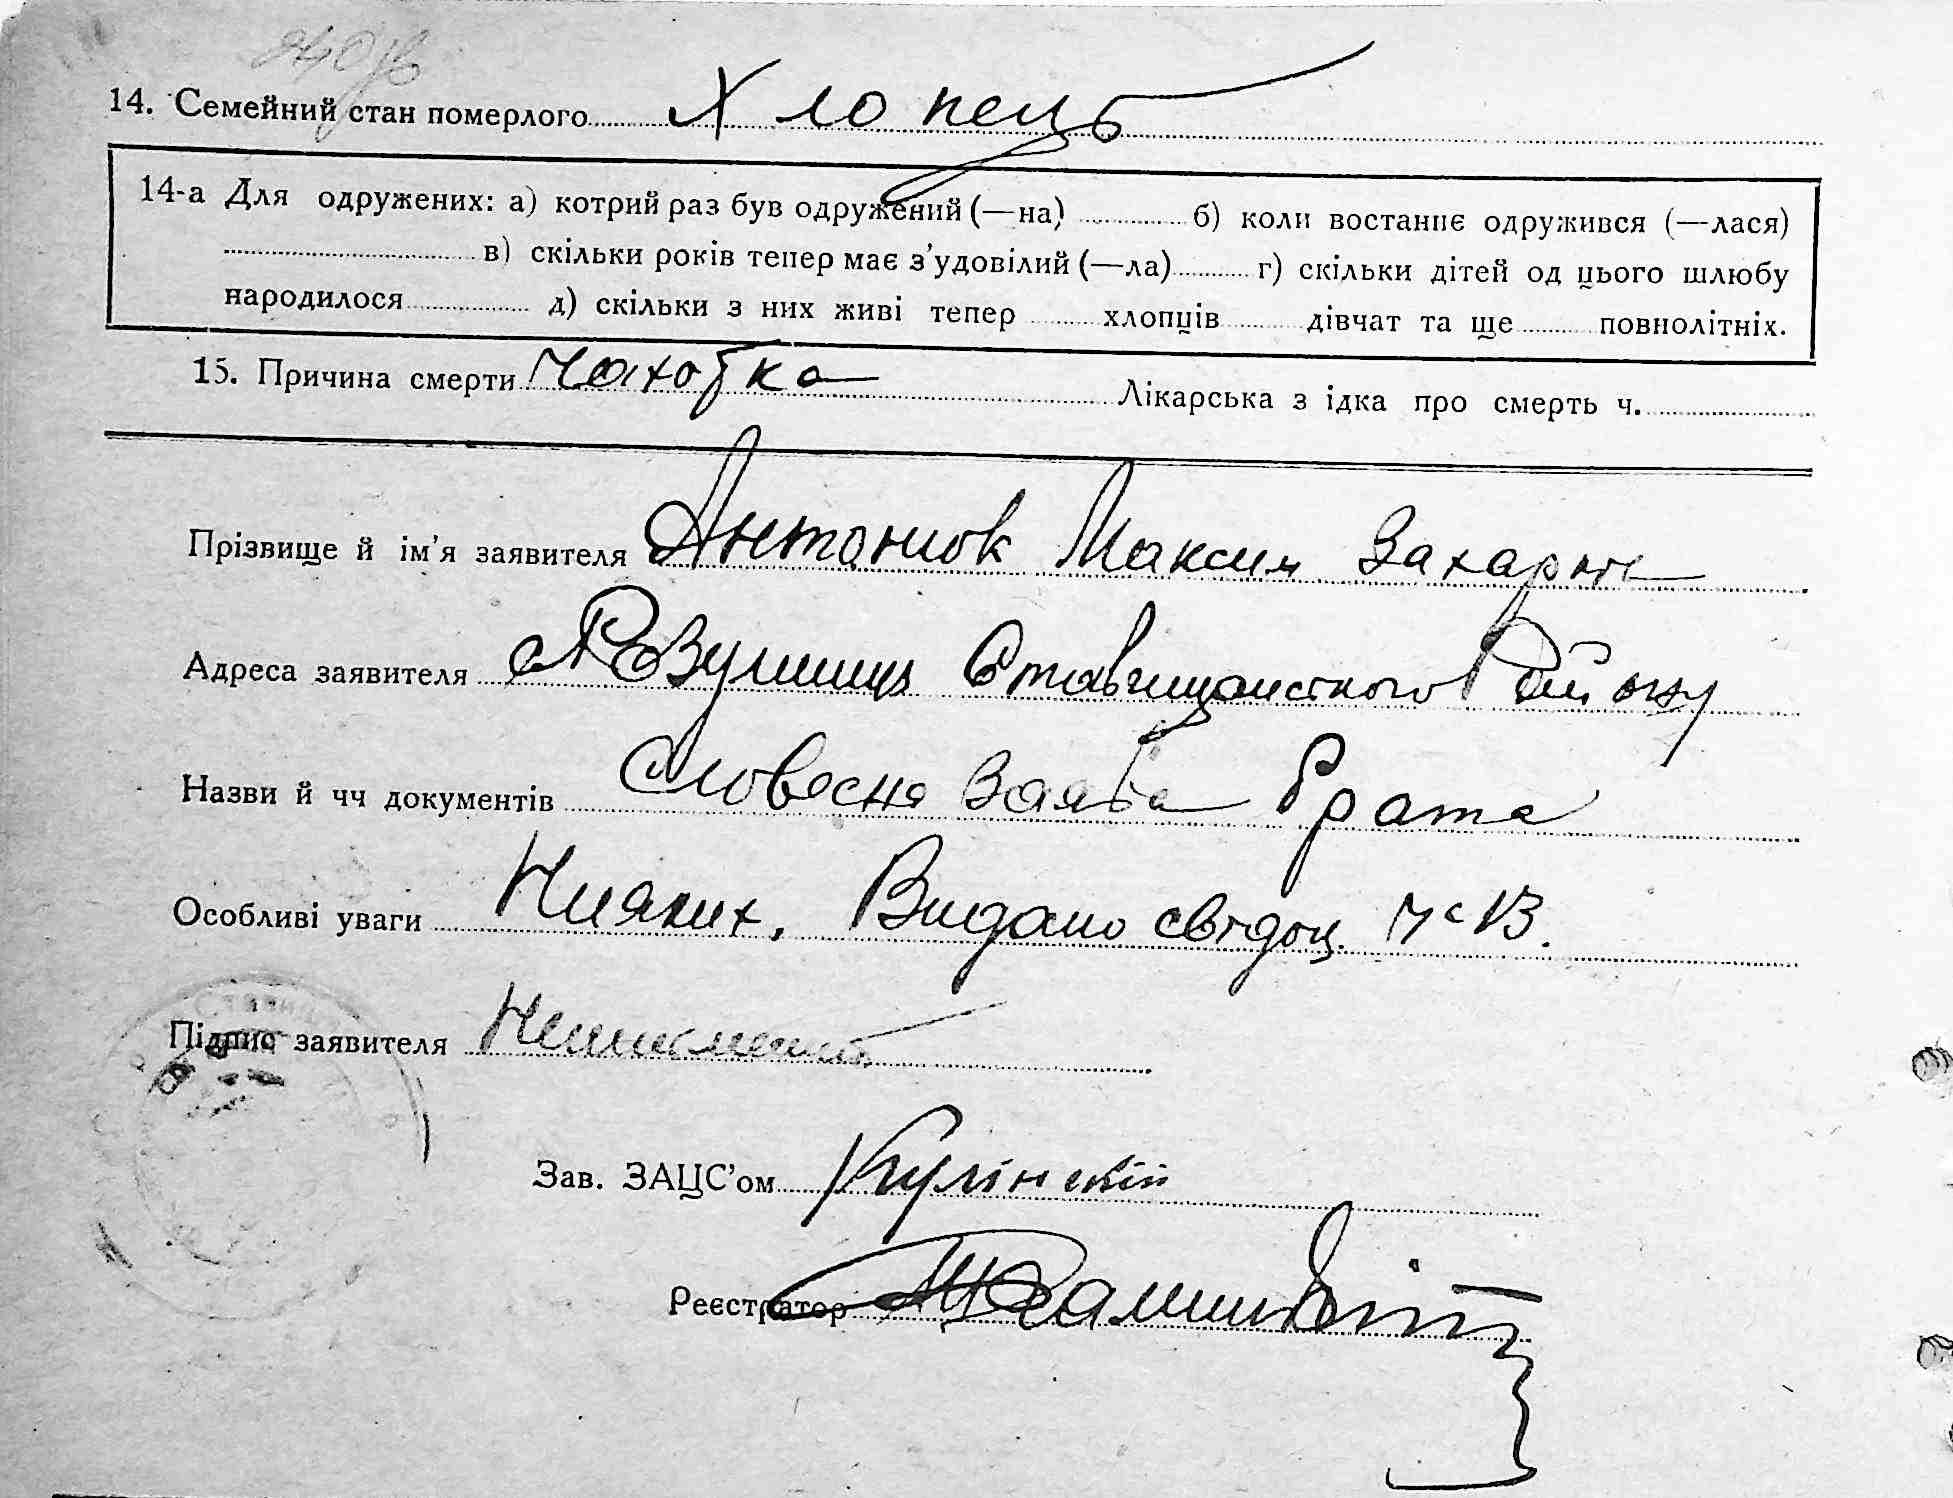 14. Семейний стан померлого Хлопець
14-а Для одружених: а) котрий раз був одружений (—на) б) коли востаннє одружився (—лася)
в) скільки років тепер має з'удовілий (—ла) г) скільки дітей од цього шлюбу
народилося д) скільки з них живі тепер хлопців дівчат та ще повнолітніх.
15. Причина смерти Чахотка Лікарська з ідка про смерть ч.
Прізвище й ім'я заявителя Антонюк Максим
Адреса заявителя Ставищанського Району
Назви й чч документів Словесна заява брата
Особливі уваги Ніяких. Видано свідоц.
Підпис заявителя
Зав. ЗАЦС'ом
Реєстратор